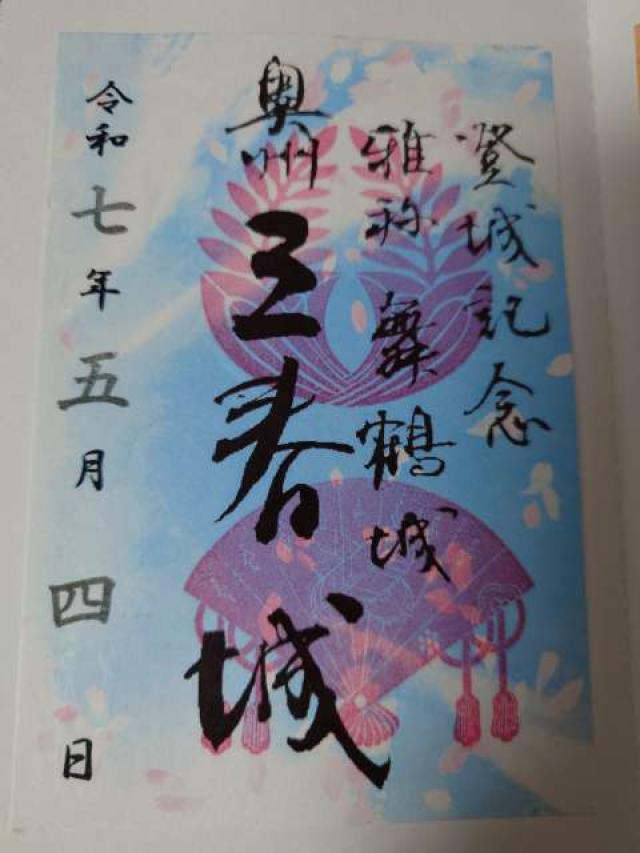 登城記念
雅称 舞鶴城
奥州
三春城
令和七年五月四日